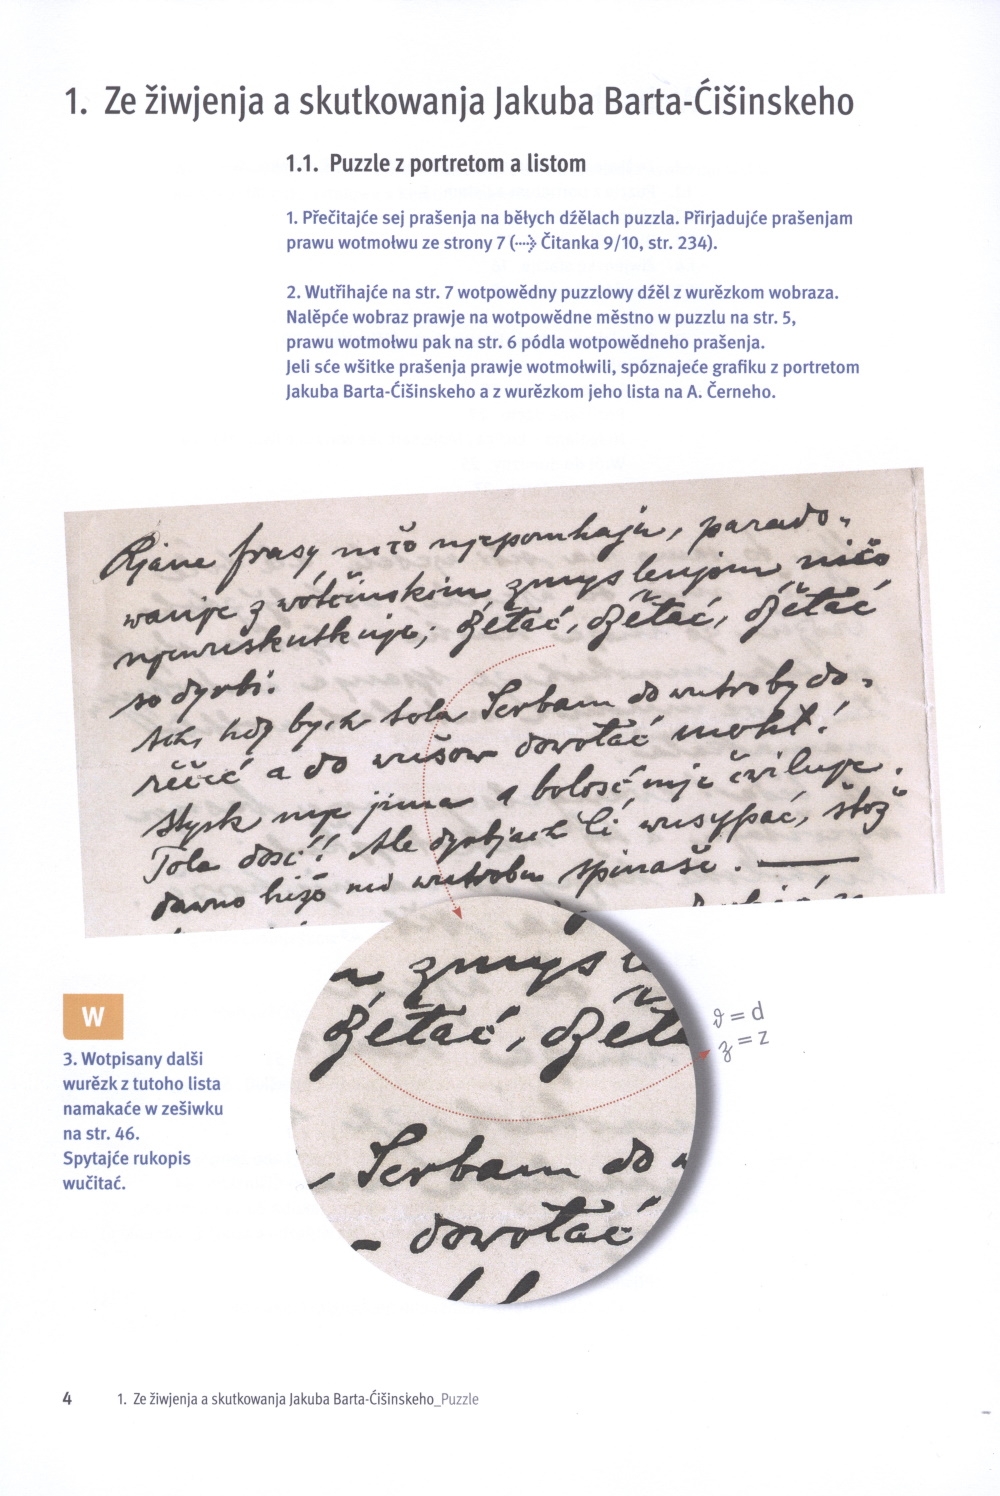 1. Ze žiwjenja a skutkowanja Jakuba Barta-Ćišinskeho
1.1. Puzzle z portretom a listom
1. Přečitajće sej prašenja na běłych dźělach puzzla. Přirjadujće prašenjam
prawu wotmołwu ze strony 7 (Čitanka 9/10, str. 234).
2. Wutřihajće na str. 7 wotpowědny puzzlowy dźěl z wurězkom wobraza.
Nalěpće wobraz prawje na wotpowědne městno w puzzlu na str. 5,
prawu wotmołwu pak na str. 6 pódla wotpowědneho prašenja.
Jeli sće wšitke prašenja prawje wotmołwili, spóznajeće grafiku z portretom
Jakuba Barta-Ćišinskeho a z wurězkom jeho lista na A. Černeho.
Rjane frasy ničo njepomhaju, parado-
wanje z wótčinskim zmyslenjom ničo
njewuskutkuje; dźěłać, dźěłać, dźěłać
so dyrbi.
Ach, hdy bych tola Serbam do wutroby do-
rěčeć a do wušow dowołać mohł!
Stysk mje jima a bolosć mje čwiluje.
Tola dosć! Ale dyrbjach Ći wusypać, štož
dawno hižo mi wutrobu spinaše.
zmysl
dźěłać, dźěł
Serbam do
dowołać
d = d
z = z
W
3. Wotpisany dalši
wurězk z tutoho lista
namakaće w zešiwku
na str. 46.
Spytajće rukopis
wučitać.
4 1. Ze žiwjenja a skutkowanja Jakuba Barta-Ćišinskeho_Puzzle